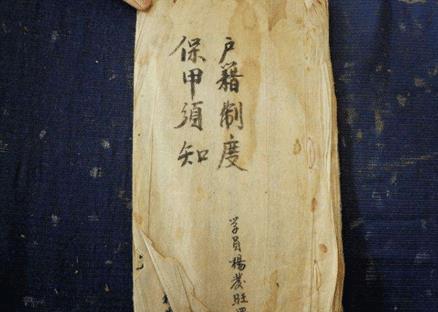 户籍制度
保甲須知
学員楊發旺